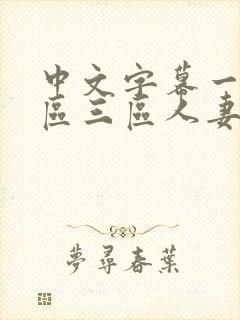 中文字幕一
區三區人妻
夢尋春葉